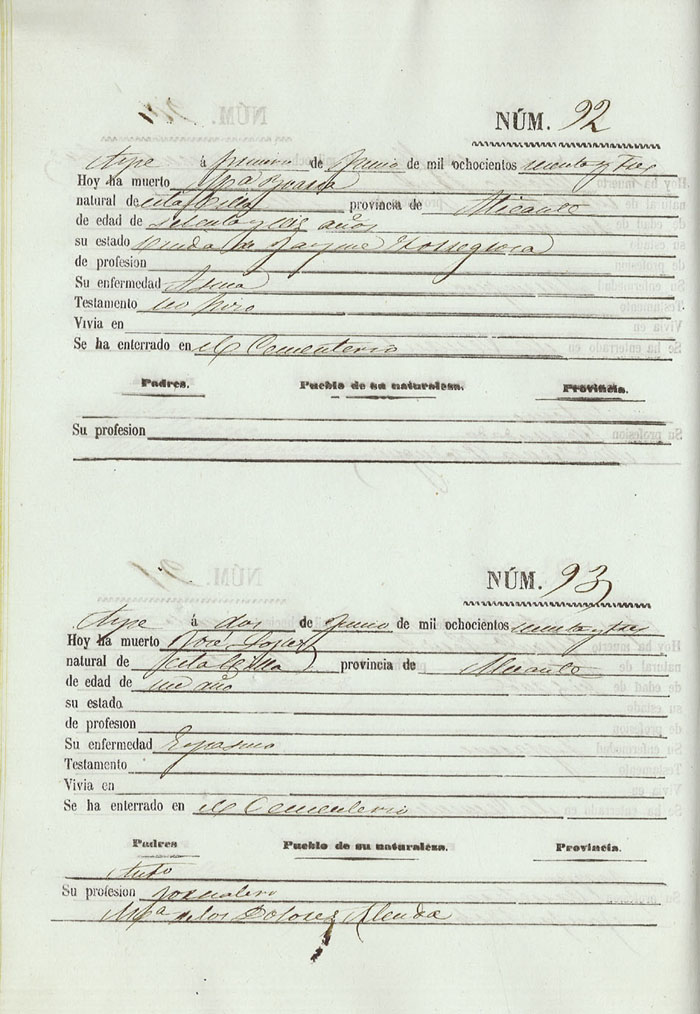 NÚM. 92
Aspe á primero de Junio de mil ochocientos
Hoy ha muerto Mª
natural de esta Villa provincia de Alicante
de edad de años
su estado Viuda de Jayme
de profesion
Su enfermedad Asma
Testamento no hizo
Vivia en
Se ha enterrado en el Cementerio
Padres. Pueblo de su naturaleza. Provincia.
Su profesion
NÚM. 93
Aspe á dos de Junio de mil ochocientos
Hoy ha muerto José Lopez
natural de esta Villa provincia de Alicante
de edad de un año
su estado
de profesion
Su enfermedad Espasmo
Testamento
Vivia en
Se ha enterrado en el Cementerio
Padres Pueblo de su naturaleza. Provincia.
Antº
Su profesion Jornalero
Mª de los Dolores Alenda